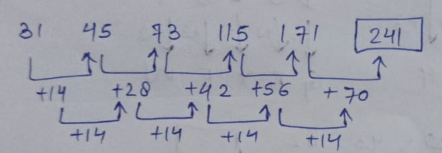 31 45 73 115 171 241
+14 +28 +42 +56 +70
+14 +14 +14 +14